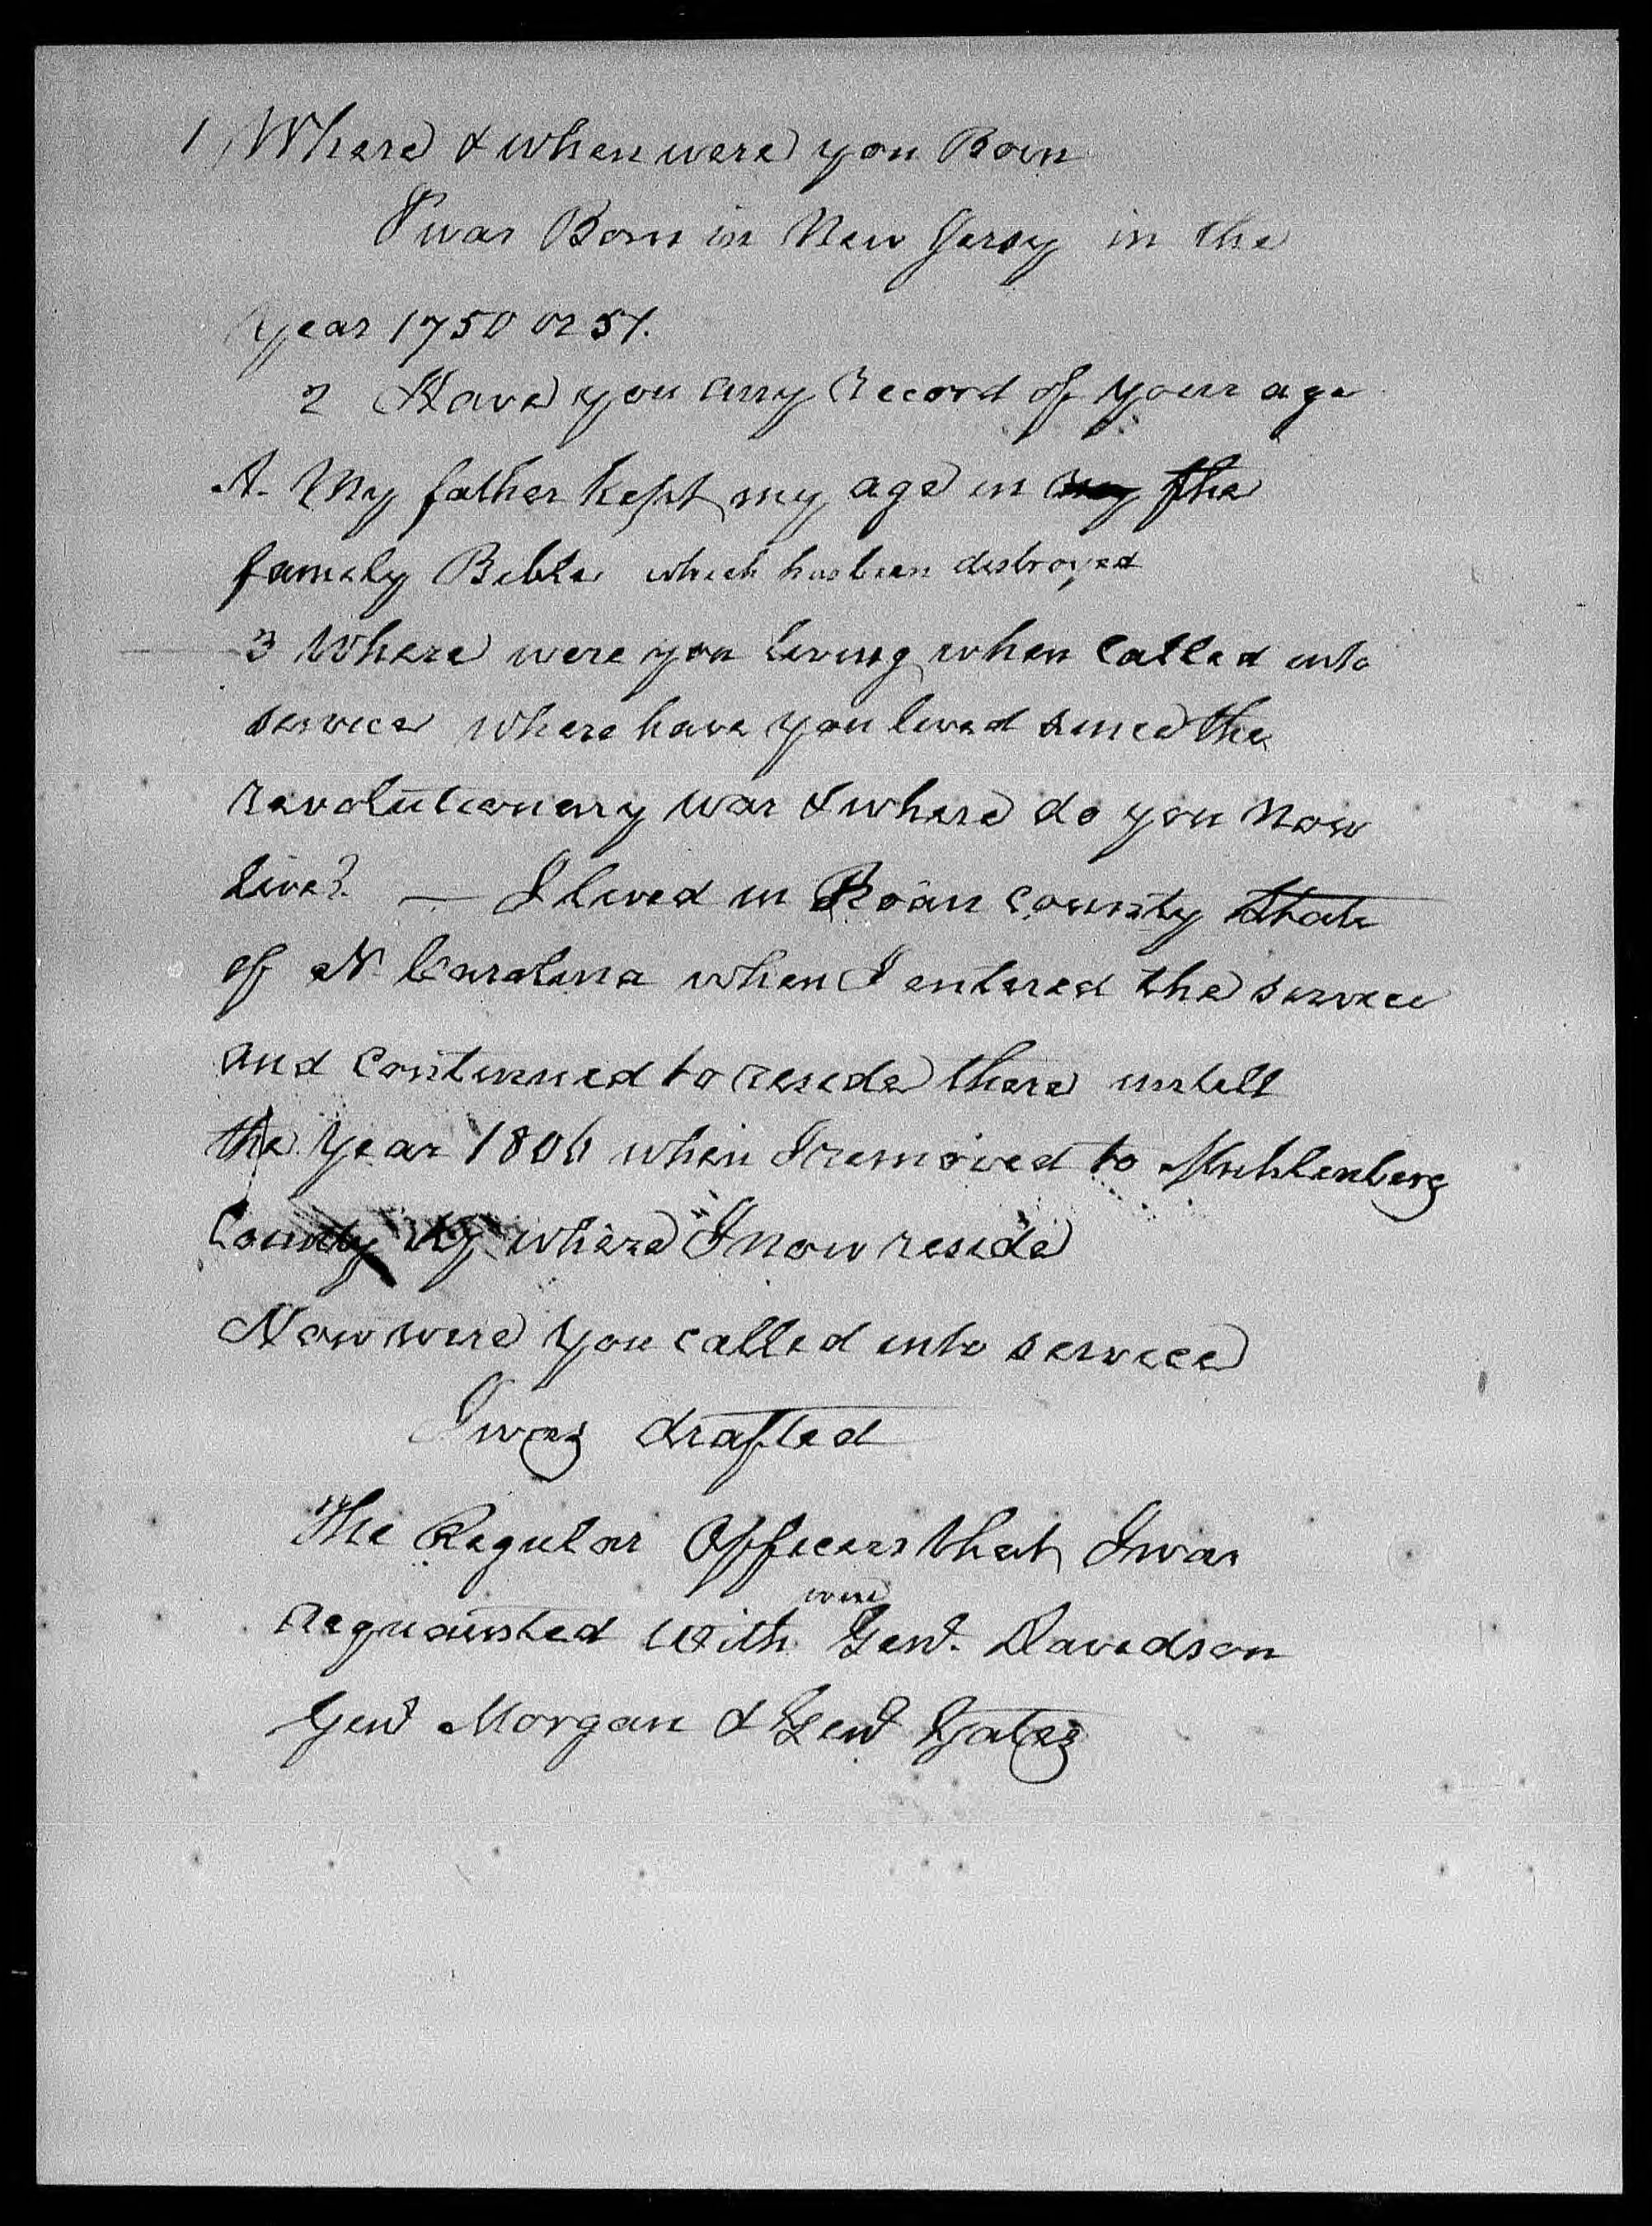 1 Where & when were you Born
I was Born in New Jersy in the
year 1750 or 51.
2 Have you any record of your age
A. My father kept my age in my the
famely Bible which has been destroyed
3 Where were you living when called into
service where have you lived since the
revolutionary war & where do you now
live? — I lived in Roan county State
of N Carolina when I entered the service
and continued to reside there untill
the year 1806 when I removed to Muhlenberg
County Ky where I now reside
How were you called into service
I was drafted
The Regular Officers that I was
acquainted with were Genl. Davidson
Genl Morgan & Genl Gates